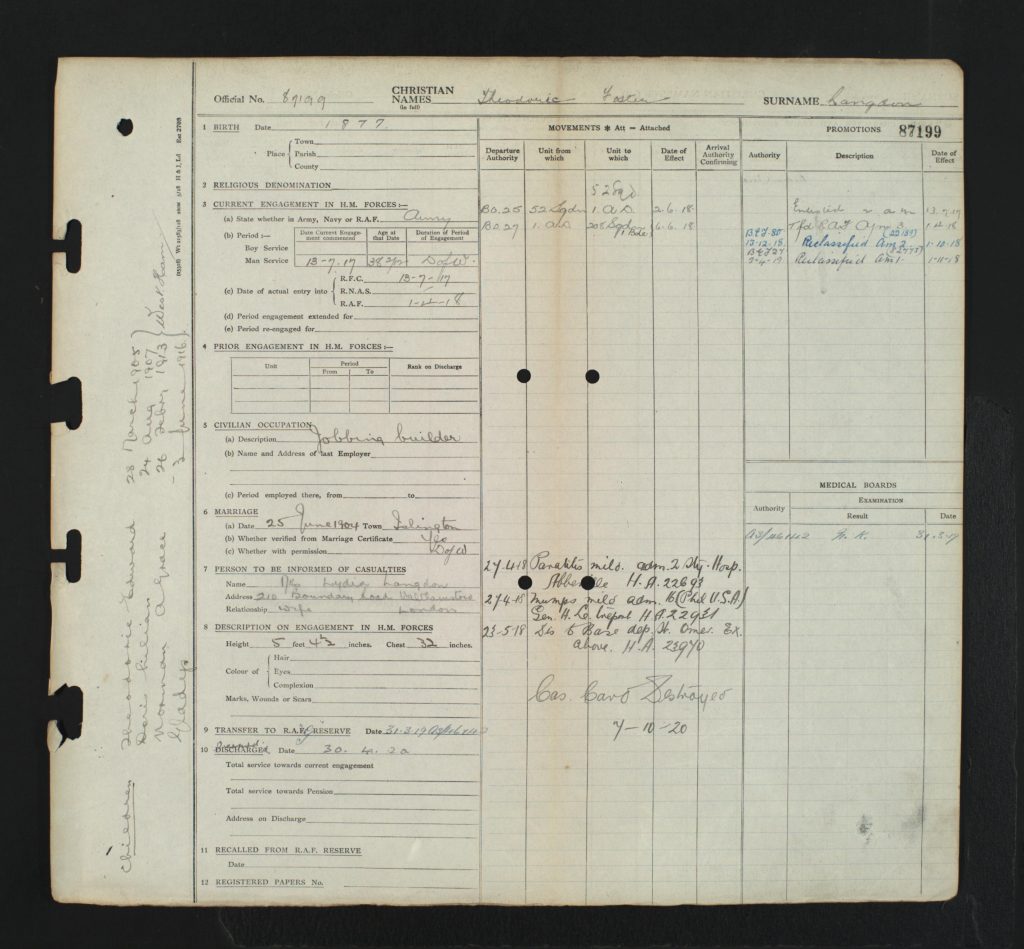 Official No. 87199 CHRISTIAN NAMES (in full) Theodoric Foster SURNAME Langdon
1 BIRTH Date 1877
Place Town
Parish
County
2 RELIGIOUS DENOMINATION
3 CURRENT ENGAGEMENT IN H.M. FORCES :—
(a) State whether in Army, Navy or R.A.F. Army
(b) Period :— Date Current Engagement commenced Age at that Date Duration of Period of Engagement
Boy Service
Man Service 13-7-17 D of W.
(c) Date of actual entry into R.F.C. 13-7-17
R.N.A.S.
R.A.F. 1-4-18
(d) Period engagement extended for
(e) Period re-engaged for
4 PRIOR ENGAGEMENT IN H.M. FORCES :—
Unit Period Rank on Discharge
From To
5 CIVILIAN OCCUPATION
(a) Description Jobbing builder
(b) Name and Address of last Employer
(c) Period employed there, from to
6 MARRIAGE
(a) Date 25 June 1904 Town Islington
(b) Whether verified from Marriage Certificate Yes
(c) Whether with permission D of W
7 PERSON TO BE INFORMED OF CASUALTIES
Name Lydia Langdon
Address 210 Boundary Road Walthamstow
Relationship Wife London
8 DESCRIPTION ON ENGAGEMENT IN H.M. FORCES
Height 5 feet 4½ inches. Chest 32 inches.
Colour of Hair
Eyes
Complexion
Marks, Wounds or Scars
9 TRANSFER TO R.A.F. RESERVE Date 31-3-19
10 DISCHARGED Date 30. 4. 20
Total service towards current engagement
Total service towards Pension
Address on Discharge
11 RECALLED FROM R.A.F. RESERVE
Date
12 REGISTERED PAPERS No.
MOVEMENTS * Att = Attached
Departure Authority Unit from which Unit to which Date of Effect Arrival Authority Confirming
52 Sqd
BO.25 52 Sqdn 1. A.D. 2-6-18
BO.27 1. A.D. 208 Sqd 6-6-18
27-4-18 mild. adm. 2 Sty. Hosp.
Abbeville H.A. 22693
27-4-18 Mumps mild adm. 16 (Phil U.S.A)
Gen. H. Le Treport H.A. 22931
23-5-18 Dis to Base dep. St. Omer. Ex.
above. H.A. 23970
Cas. Card Destroyed
7-10-20
PROMOTIONS 87199
Authority Description Date of Effect
Enlisted 13-7-17
Tfd RAF 3 1-4-18
13-12-18 Reclassified Am 2 1-10-18
Reclassified Am 1. 1-11-18
MEDICAL BOARDS
Authority EXAMINATION
Result Date
31-3-19
Children Theodoric Edward 28 March 1905
Doris Lilian 24 Aug 1907
Norman A Grace 26 Febry 1913 West Ham
Gladys 3 June 1916